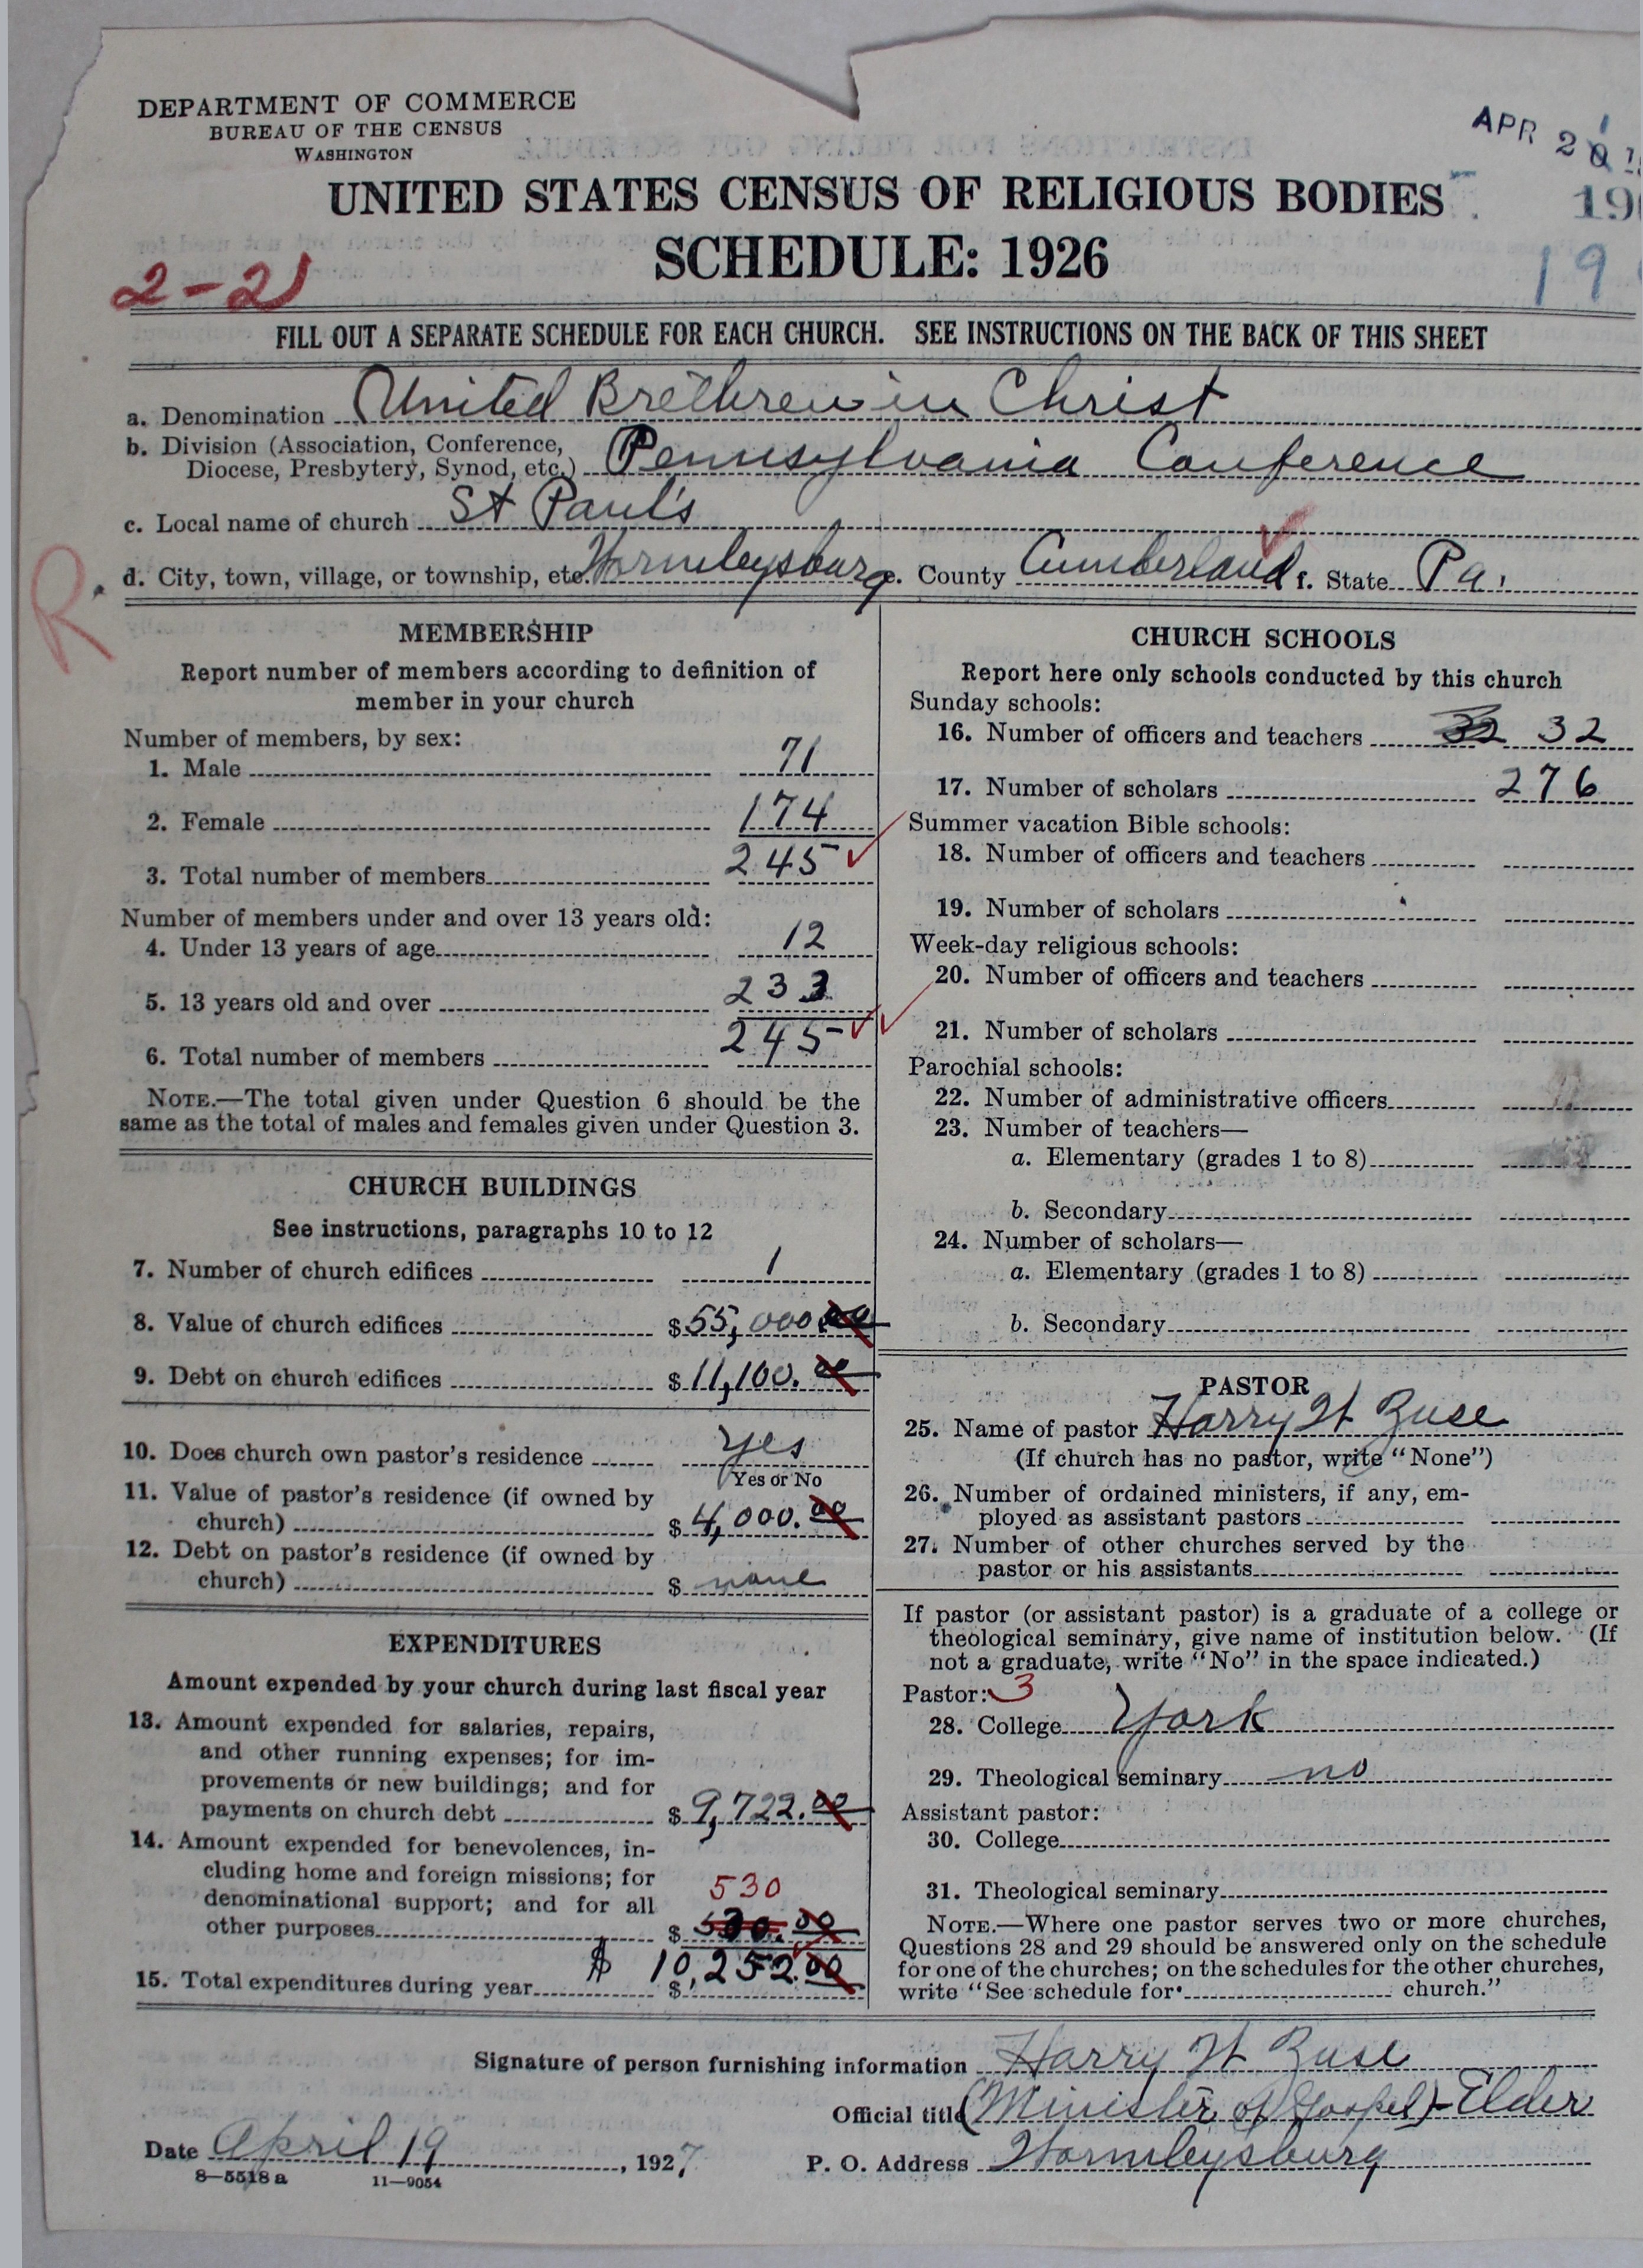 DEPARTMENT OF COMMERCE
BUREAU OF THE CENSUS
WASHINGTON
APR 2
UNITED STATES CENSUS OF RELIGIOUS BODIES
SCHEDULE: 1926
2-21
FILL OUT A SEPARATE SCHEDULE FOR EACH CHURCH. SEE INSTRUCTIONS ON THE BACK OF THIS SHEET
a. Denomination United Brethren in Christ
b. Division (Association, Conference,
Diocese, Presbytery, Synod, etc.) Pennsylvania Conference
c. Local name of church St Paul's
d. City, town, village, or township, etc. Wormleysburg e. County Cumberland f. State Pa.
R.
MEMBERSHIP
Report number of members according to definition of
member in your church
Number of members, by sex:
1. Male 71
2. Female 174
3. Total number of members 245
Number of members under and over 13 years old:
4. Under 13 years of age 12
5. 13 years old and over 233
6. Total number of members 245
NOTE.—The total given under Question 6 should be the
same as the total of males and females given under Question 3.
CHURCH BUILDINGS
See instructions, paragraphs 10 to 12
7. Number of church edifices 1
8. Value of church edifices $55,000.00
9. Debt on church edifices $11,100.00
10. Does church own pastor's residence yes
Yes or No
11. Value of pastor's residence (if owned by
church) $4,000.00
12. Debt on pastor's residence (if owned by
church) $ none
EXPENDITURES
Amount expended by your church during last fiscal year
13. Amount expended for salaries, repairs,
and other running expenses; for im-
provements or new buildings; and for
payments on church debt $9,722.00
14. Amount expended for benevolences, in-
cluding home and foreign missions; for
denominational support; and for all 530
other purposes $530.00
15. Total expenditures during year $ $10,252.00
CHURCH SCHOOLS
Report here only schools conducted by this church
Sunday schools:
16. Number of officers and teachers 32 32
17. Number of scholars 276
Summer vacation Bible schools:
18. Number of officers and teachers
19. Number of scholars
Week-day religious schools:
20. Number of officers and teachers
21. Number of scholars
Parochial schools:
22. Number of administrative officers
23. Number of teachers—
a. Elementary (grades 1 to 8)
b. Secondary
24. Number of scholars—
a. Elementary (grades 1 to 8)
b. Secondary
PASTOR
25. Name of pastor Harry W Zuse
(If church has no pastor, write "None")
26. Number of ordained ministers, if any, em-
ployed as assistant pastors
27. Number of other churches served by the
pastor or his assistants
If pastor (or assistant pastor) is a graduate of a college or
theological seminary, give name of institution below. (If
not a graduate, write "No" in the space indicated.)
Pastor: 3
28. College York
29. Theological seminary no
Assistant pastor:
30. College
31. Theological seminary
NOTE.—Where one pastor serves two or more churches,
Questions 28 and 29 should be answered only on the schedule
for one of the churches; on the schedules for the other churches,
write "See schedule for church."
Signature of person furnishing information Harry W Zuse
Official title (Minister of Gospel)-Elder
Date April 19, 1927 P. O. Address Wormleysburg
8-5518a 11-9054